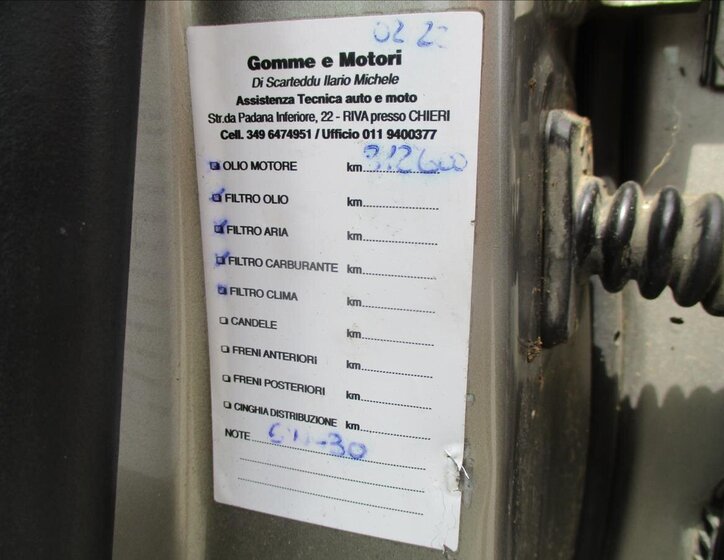 02 22
Gomme e Motori
Di Scarteddu Ilario Michele
Assistenza Tecnica auto e moto
Str.da Padana Inferiore, 22 - RIVA presso CHIERI
Cell. 349 6474951 / Ufficio 011 9400377
OLIO MOTORE km 312600
FILTRO OLIO km
FILTRO ARIA km
FILTRO CARBURANTE km
FILTRO CLIMA km
CANDELE km
FRENI ANTERIORI km
FRENI POSTERIORI km
CINGHIA DISTRIBUZIONE km
NOTE